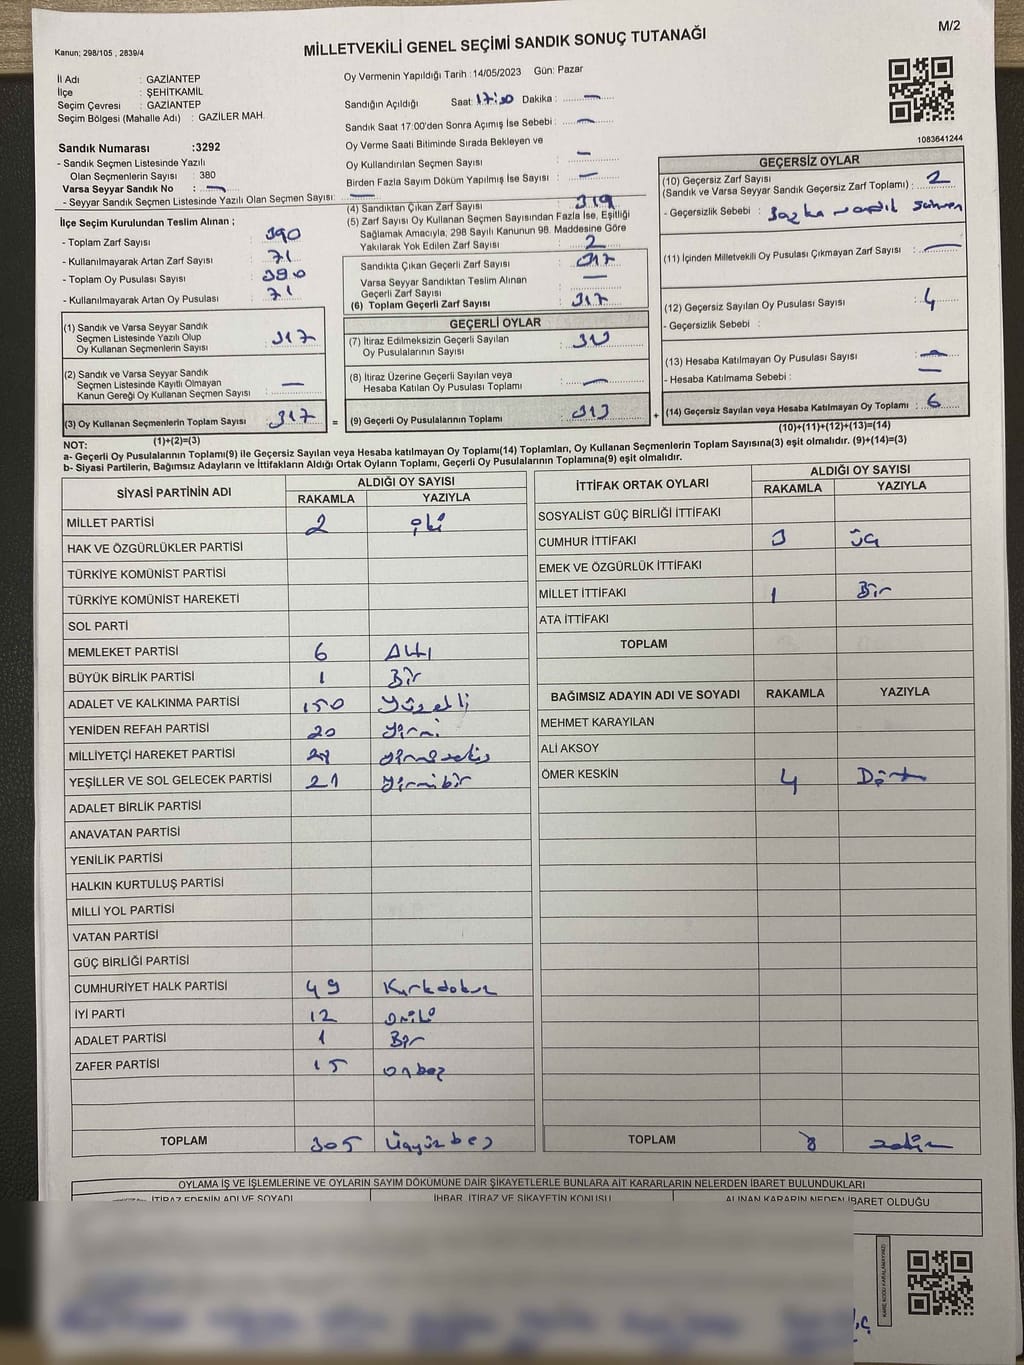 M/2
Kanun; 298/105 , 2839/4
MİLLETVEKİLİ GENEL SEÇİMİ SANDIK SONUÇ TUTANAĞI
İl Adı : GAZİANTEP
İlçe : ŞEHİTKAMİL
Seçim Çevresi : GAZİANTEP
Seçim Bölgesi (Mahalle Adı) : GAZİLER MAH.
Sandık Numarası :3292
- Sandık Seçmen Listesinde Yazılı
Olan Seçmenlerin Sayısı : 380
Varsa Seyyar Sandık No : —
- Seyyar Sandık Seçmen Listesinde Yazılı Olan Seçmen Sayısı: —
İlçe Seçim Kurulundan Teslim Alınan ;
- Toplam Zarf Sayısı : 390
- Kullanılmayarak Artan Zarf Sayısı : 71
- Toplam Oy Pusulası Sayısı : 390
- Kullanılmayarak Artan Oy Pusulası : 71
(1) Sandık ve Varsa Seyyar Sandık
Seçmen Listesinde Yazılı Olup
Oy Kullanan Seçmenlerin Sayısı : 317
(2) Sandık ve Varsa Seyyar Sandık
Seçmen Listesinde Kayıtlı Olmayan
Kanun Gereği Oy Kullanan Seçmen Sayısı : —
(3) Oy Kullanan Seçmenlerin Toplam Sayısı : 317
(1)+(2)=(3)
Oy Vermenin Yapıldığı Tarih :14/05/2023 Gün: Pazar
Sandığın Açıldığı Saat: 17:30 Dakika : —
Sandık Saat 17:00'den Sonra Açımış İse Sebebi : —
Oy Verme Saati Bitiminde Sırada Bekleyen ve
Oy Kullandırılan Seçmen Sayısı : —
Birden Fazla Sayım Döküm Yapılmış İse Sayısı : —
(4) Sandıktan Çıkan Zarf Sayısı : 319
(5) Zarf Sayısı Oy Kullanan Seçmen Sayısından Fazla İse, Eşitliği
Sağlamak Amacıyla, 298 Sayılı Kanunun 98. Maddesine Göre
Yakılarak Yok Edilen Zarf Sayısı : 2
Sandıkta Çıkan Geçerli Zarf Sayısı : 317
Varsa Seyyar Sandıktan Teslim Alınan
Geçerli Zarf Sayısı : —
(6) Toplam Geçerli Zarf Sayısı : 317
GEÇERLİ OYLAR
(7) İtiraz Edilmeksizin Geçerli Sayılan
Oy Pusulalarının Sayısı : 313
(8) İtiraz Üzerine Geçerli Sayılan veya
Hesaba Katılan Oy Pusulası Toplamı : —
(9) Geçerli Oy Pusulalarının Toplamı : 313
1083641244
GEÇERSİZ OYLAR
(10) Geçersiz Zarf Sayısı
(Sandık ve Varsa Seyyar Sandık Geçersiz Zarf Toplamı) : 2
- Geçersizlik Sebebi :
(11) İçinden Milletvekili Oy Pusulası Çıkmayan Zarf Sayısı : —
(12) Geçersiz Sayılan Oy Pusulası Sayısı : 4
- Geçersizlik Sebebi :
(13) Hesaba Katılmayan Oy Pusulası Sayısı : —
- Hesaba Katılmama Sebebi : —
+ (14) Geçersiz Sayılan veya Hesaba Katılmayan Oy Toplamı : 6
(10)+(11)+(12)+(13)=(14)
NOT:
a- Geçerli Oy Pusulalarının Toplamı(9) ile Geçersiz Sayılan veya Hesaba katılmayan Oy Toplamı(14) Toplamları, Oy Kullanan Seçmenlerin Toplam Sayısına(3) eşit olmalıdır. (9)+(14)=(3)
b- Siyasi Partilerin, Bağımsız Adayların ve İttifakların Aldığı Ortak Oyların Toplamı, Geçerli Oy Pusulalarının Toplamına(9) eşit olmalıdır.
SİYASİ PARTİNİN ADI ALDIĞI OY SAYISI
RAKAMLA YAZIYLA
MİLLET PARTİSİ 2 iki
HAK VE ÖZGÜRLÜKLER PARTİSİ
TÜRKİYE KOMÜNİST PARTİSİ
TÜRKİYE KOMÜNİST HAREKETİ
SOL PARTİ
MEMLEKET PARTİSİ 6 Altı
BÜYÜK BİRLİK PARTİSİ 1 Bir
ADALET VE KALKINMA PARTİSİ 150 Yüzelli
YENİDEN REFAH PARTİSİ 20 Yirmi
MİLLİYETÇİ HAREKET PARTİSİ 28 yirmisekiz
YEŞİLLER VE SOL GELECEK PARTİSİ 21 Yirmibir
ADALET BİRLİK PARTİSİ
ANAVATAN PARTİSİ
YENİLİK PARTİSİ
HALKIN KURTULUŞ PARTİSİ
MİLLİ YOL PARTİSİ
VATAN PARTİSİ
GÜÇ BİRLİĞİ PARTİSİ
CUMHURİYET HALK PARTİSİ 49 Kırkdokuz
İYİ PARTİ 12 oniki
ADALET PARTİSİ 1 Bir
ZAFER PARTİSİ 15 onbeş
TOPLAM 305 Üçyüzbeş
İTTİFAK ORTAK OYLARI ALDIĞI OY SAYISI
RAKAMLA YAZIYLA
SOSYALİST GÜÇ BİRLİĞİ İTTİFAKI
CUMHUR İTTİFAKI 3 üç
EMEK VE ÖZGÜRLÜK İTTİFAKI
MİLLET İTTİFAKI 1 Bir
ATA İTTİFAKI
TOPLAM
BAĞIMSIZ ADAYIN ADI VE SOYADI RAKAMLA YAZIYLA
MEHMET KARAYILAN
ALİ AKSOY
ÖMER KESKİN 4 Dört
TOPLAM 8 sekiz
OYLAMA İŞ VE İŞLEMLERİNE VE OYLARIN SAYIM DÖKÜMÜNE DAİR ŞİKAYETLERLE BUNLARA AİT KARARLARIN NELERDEN İBARET BULUNDUKLARI
İTİRAZ EDENİN ADI VE SOYADI İHBAR, İTİRAZ VE ŞİKAYETİN KONUSU ALINAN KARARIN NEDEN İBARET OLDUĞU